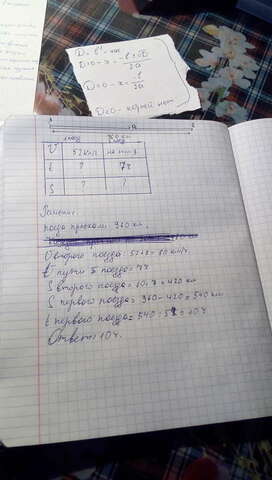 D>0 - x =
2a
D=0 - x =
2a
D<0 - корней нет
960 км
υ 52км/ч
t ? 7ч
S ? ?
Решение
поезд проехали 960 км.
υ второго поезда = 52+8 = 60 км/ч
t пути II поезда = 7ч
S второго поезда = 60·7 = 420 км
S первого поезда = 960 - 420 = 540 км
t первого поезда = 540 : 54 = 10 ч
Ответ: 10 ч.